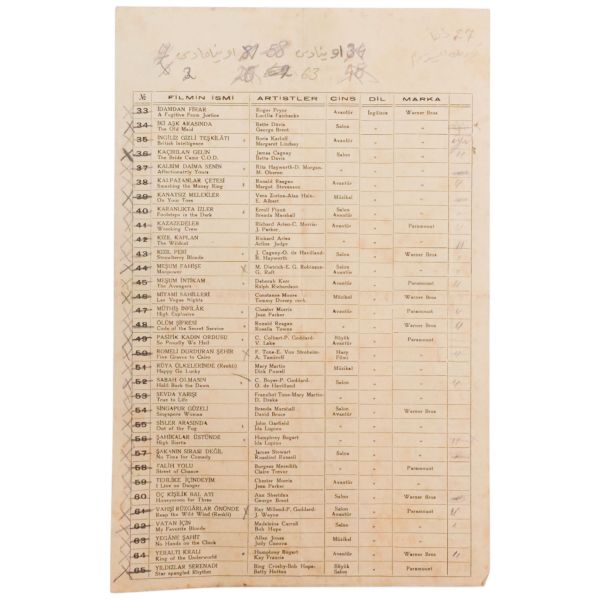 81 58 34
2 63
№ FİLMİN İSMİ ARTİSTLER CİNS DİL MARKA
33 İDAMDAN FİRAR Roger Pryor Avantür İngilizce Warner Bros
A Fugitive From Justice Lucille Fairbanks
34 İKİ AŞK ARASINDA Bette Davis Salon
The Old Maid George Brent
35 İNGİLİZ GİZLİ TEŞKİLÂTI Boris Karloff Avantür
British Intelligence Margaret Lindsay
36 KAÇIRILAN GELİN James Cagney Salon
The Bride Came C.O.D. Bette Davis
37 KALBİM DAİMA SENİN Rita Hayworth-D. Morgan-
Affectionately Yours M. Oberon
38 KALPAZANLAR ÇETESİ Ronald Reagan
Smashing the Money Ring Margot Stevenson Avantür
39 KANATSIZ MELEKLER Vera Zorina-Alan Hale- Müzikal
On Your Toes E. Albert
40 KARANLIKTA İZLER Erroll Flynn Salon
Footsteps in the Dark Brenda Marshall Avantür
41 KAZAZEDELER Richard Arlen-C. Morris- Avantür Paramount
Wrecking Crew J. Parker
42 KIZIL KAPLAN Richard Arlen
The Wildcat Arline Judge
43 KIZIL PERİ J. Cagney-O. de Havilland- Salon Warner Bros
Strawberry Blonde R. Hayworth
44 MEŞUM FAHİŞE M. Dietrich-E. G. Robinson- Salon
Manpower G. Raft Avantür
45 MEŞUM İNTİKAM Deborah Kerr Avantür Paramount
The Avengers Ralph Richardson
46 MİYAMİ SAHİLLERİ Constance Moore Müzikal Warner Bros
Las Vegas Nights Tommy Dorsey
47 MÜTHİŞ İNFİLÂK Chester Morris Avantür Paramount
High Explosive Jean Parker
48 ÖLÜM ŞİFRESİ Ronald Reagan Warner Bros
Code of the Secret Service Rosella Towne
49 PASİFİK KADIN ORDUSU C. Colbert-P. Goddard- Büyük Paramount
So Proudly We Hail V. Lake Avantür
50 ROMELİ DURDURAN ŞEHİR F. Tone-E. Von Stroheim- Harp
Five Graves to Cairo A. Tamiroff Filmi
51 RÜYA ÜLKELERİNDE (Renkli) Mary Martin Müzikal
Happy Go Lucky Dick Powell
52 SABAH OLMASIN C. Boyer-P. Goddard- Salon
Hold Back the Dawn O. de Havilland
53 SEVDA YARIŞI Franchot Tone-Mary Martin-
True to Life D. Drake
54 SİNGAPUR GÜZELİ Brenda Marshall Salon Warner Bros
Singapore Woman David Bruce Avantür
55 SİSLER ARASINDA John Garfield
Out of the Fog Ida Lupino
56 ŞAHİKALAR ÜSTÜNDE Humphrey Bogart
High Sierra Ida Lupino
57 ŞAKANIN SIRASI DEĞİL James Stewart Salon
No Time for Comedy Rosalind Russell
58 TALİH YOLU Burgess Meredith Paramount
Street of Chance Claire Trevor
59 TEHLİKE İÇİNDEYİM Chester Morris Avantür
I Live on Danger Jean Parker
60 ÜÇ KİŞİLİK BAL AYI Ann Sheridan Salon Warner Bros
Honeymoon for Three George Brent
61 VAHŞİ RÜZGÂRLAR ÖNÜNDE Ray Milland-P. Goddard- Salon Paramount
Reap the Wild Wind (Renkli) J. Wayne Avantür
62 VATAN İÇİN Madeleine Carroll Salon
My Favorite Blonde Bob Hope
63 YEGÂNE ŞAHİT Allan Jones Müzikal
No Hands on the Clock Judy Canova
64 YERALTI KRALI Humphrey Bogart Avantür Warner Bros
King of the Underworld Kay Francis
65 YILDIZLAR SERENADI Bing Crosby-Bob Hope- Büyük Paramount
Star spangled Rhythm Betty Hutton Salon